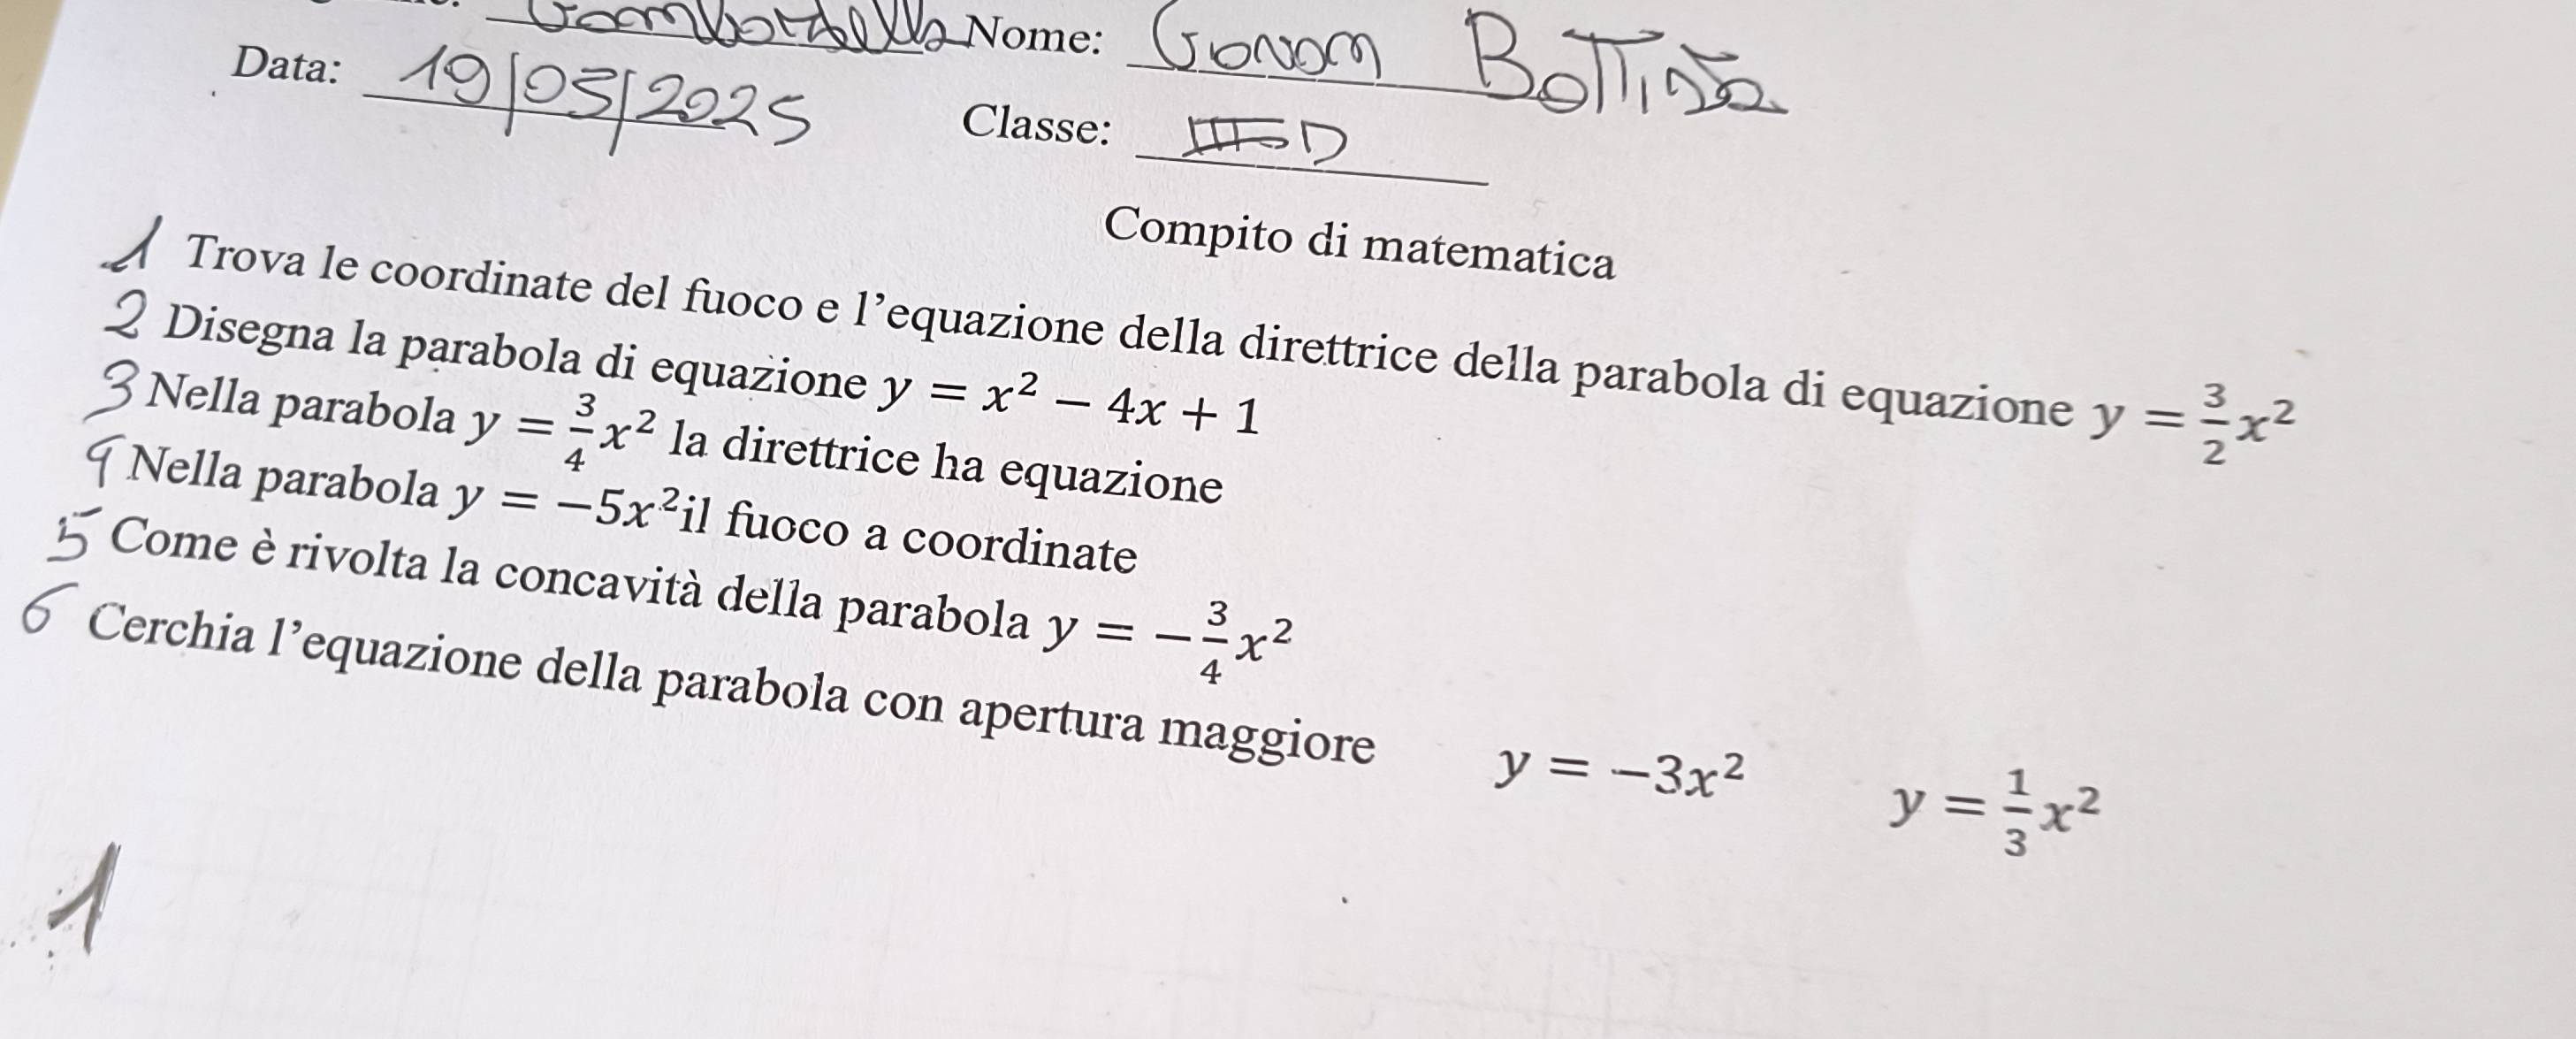 Nome:
Data: 19/03/2025 Classe: III D
Compito di matematica
1 Trova le coordinate del fuoco e l’equazione della direttrice della parabola di equazione y = 3/2 x²
2 Disegna la parabola di equazione y = x² − 4x + 1
3 Nella parabola y = 3/4 x² la direttrice ha equazione
4 Nella parabola y = −5x² il fuoco a coordinate
5 Come è rivolta la concavità della parabola y = −3/4 x²
6 Cerchia l’equazione della parabola con apertura maggiore y = −3x² y = 1/3 x²
1